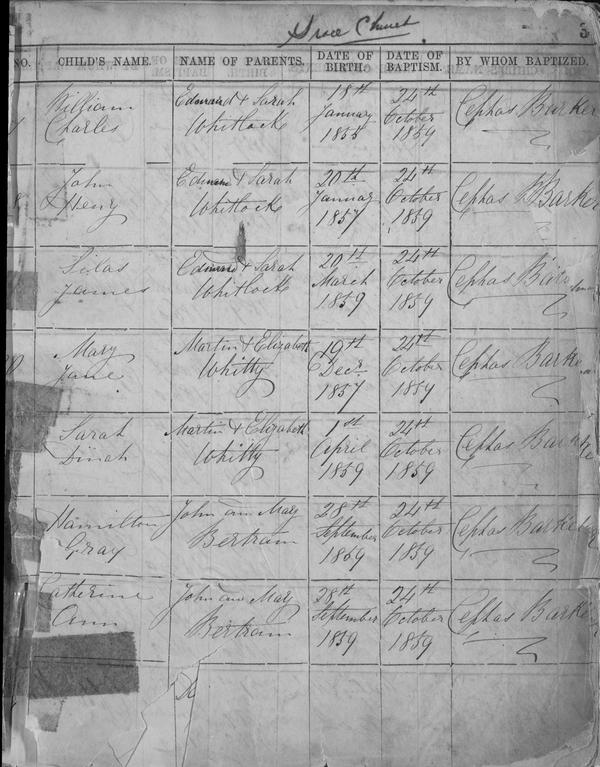 Grace Church
3
NO. CHILD'S NAME. NAME OF PARENTS. DATE OF BIRTH. DATE OF BAPTISM. BY WHOM BAPTIZED.
William Edmund & Sarah 18th 24th Cephas Barker
Charles Whitlock January October
1855 1859
John Edmund & Sarah 20th 24th Cephas Barker
Henry Whitlock January October
1857 1859
Silas Edmund & Sarah 20th 24th Cephas Barker
James Whitlock March October
1859 1859
Mary Martin & Elizabeth 19th 24th Cephas Barker
Jane Whitty Decr October
1857 1859
Sarah Martin & Elizabeth 1st 24th Cephas Barker
Dinah Whitty April October
1859 1859
Hamilton John and Mary 28th 24th Cephas Barker
Gray Bertram September October
1859 1859
Catherine John and Mary 28th 24th Cephas Barker
Ann Bertram September October
1859 1859